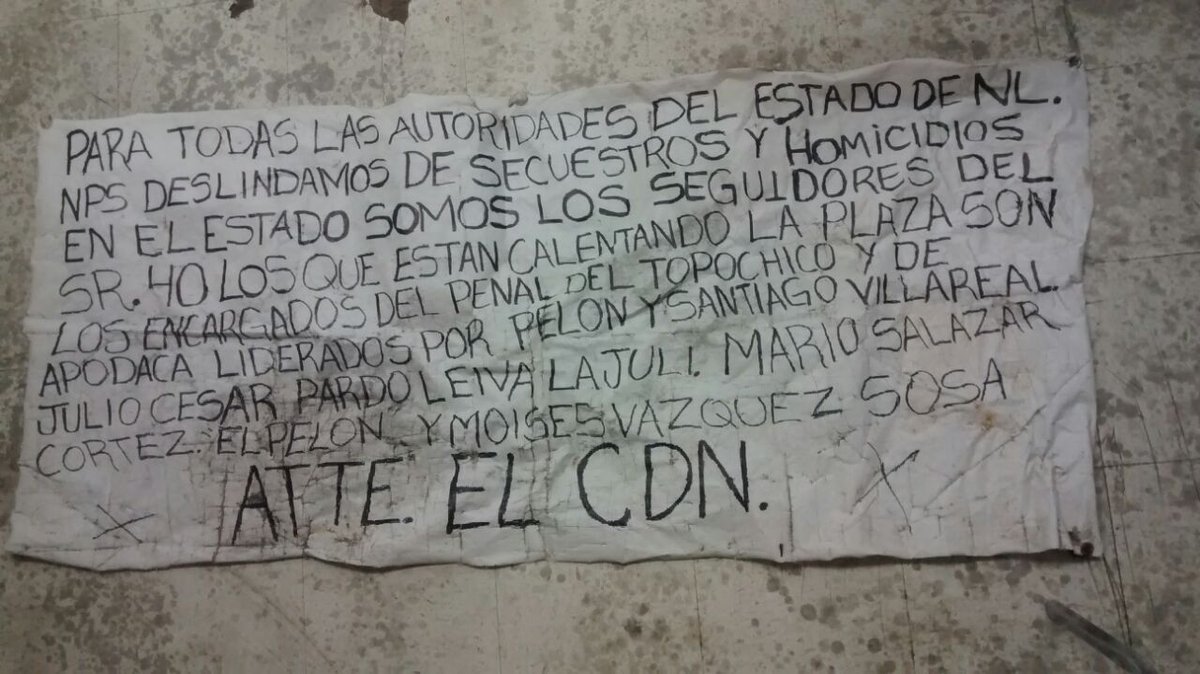 PARA TODAS LAS AUTORIDADES DEL ESTADO DE NL.
NPS DESLINDAMOS DE SECUESTROS Y HOMICIDIOS
EN EL ESTADO SOMOS LOS SEGUIDORES DEL
SR. 40 LOS QUE ESTAN CALENTANDO LA PLAZA SON
LOS ENCARGADOS DEL PENAL DEL TOPOCHICO Y DE
APODACA LIDERADOS POR PELON Y SANTIAGO VILLAREAL.
JULIO CESAR PARDO LEIVA LA JULI. MARIO SALAZAR
CORTEZ. EL PELON. Y MOISES VAZQUEZ SOSA
ATTE. EL CDN.